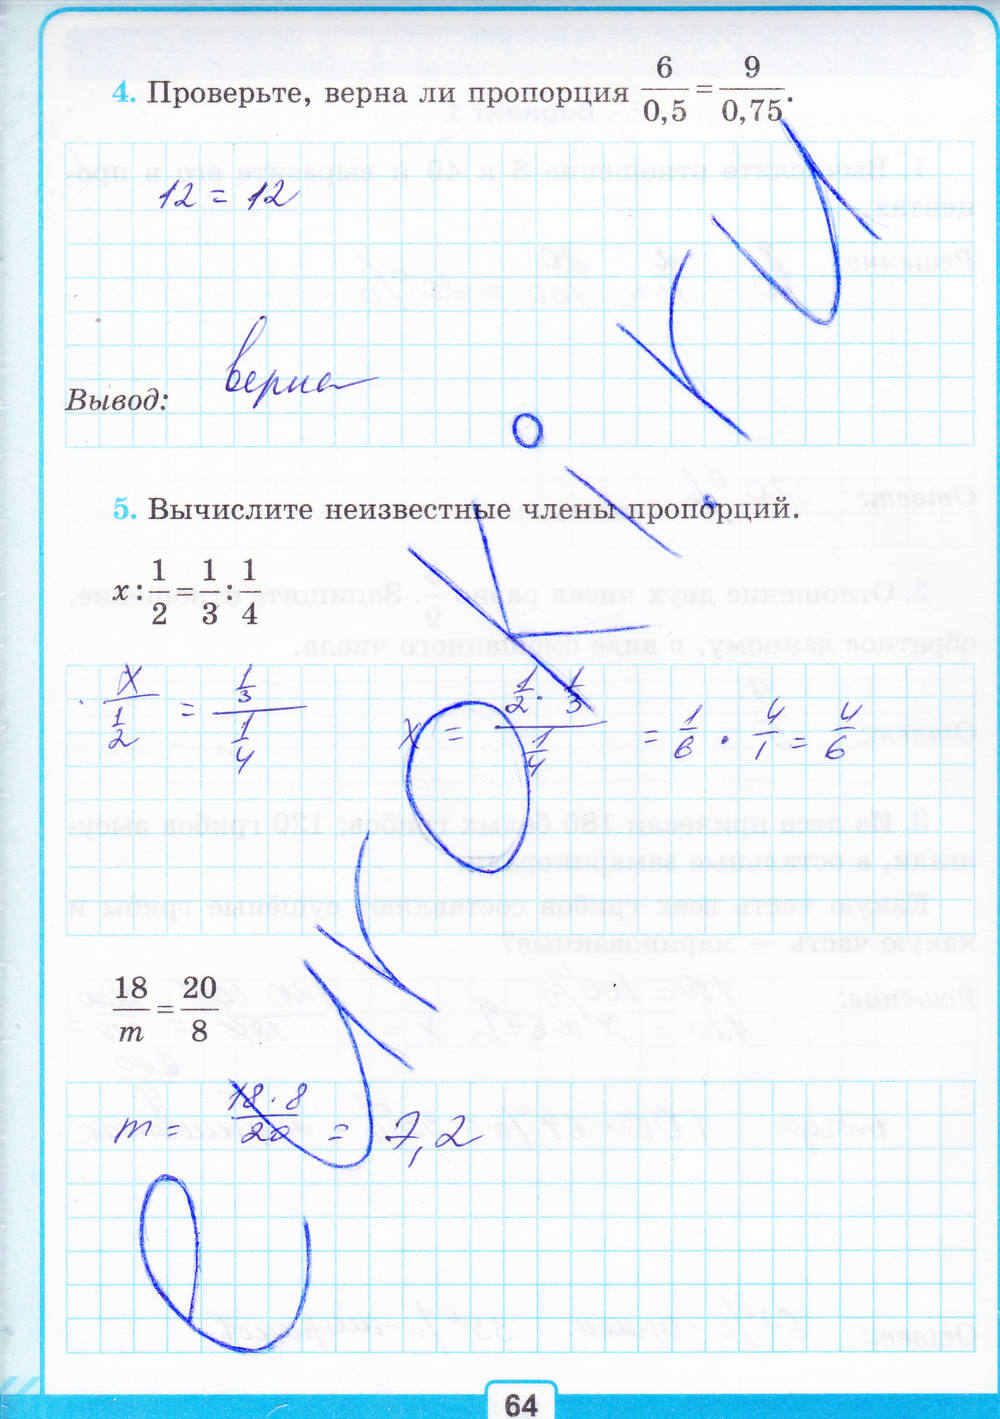 4. Проверьте, верна ли пропорция 6/0,5 = 9/0,75.
12 = 12
Вывод: верна
5. Вычислите неизвестные члены пропорций.
x : 1/2 = 1/3 : 1/4
x/(1/2) = (1/3)/(1/4) x = (1/2 · 1/3)/(1/4) = 1/6 · 4/1 = 4/6
18/m = 20/8
m = (18 · 8)/20 = 7,2
64